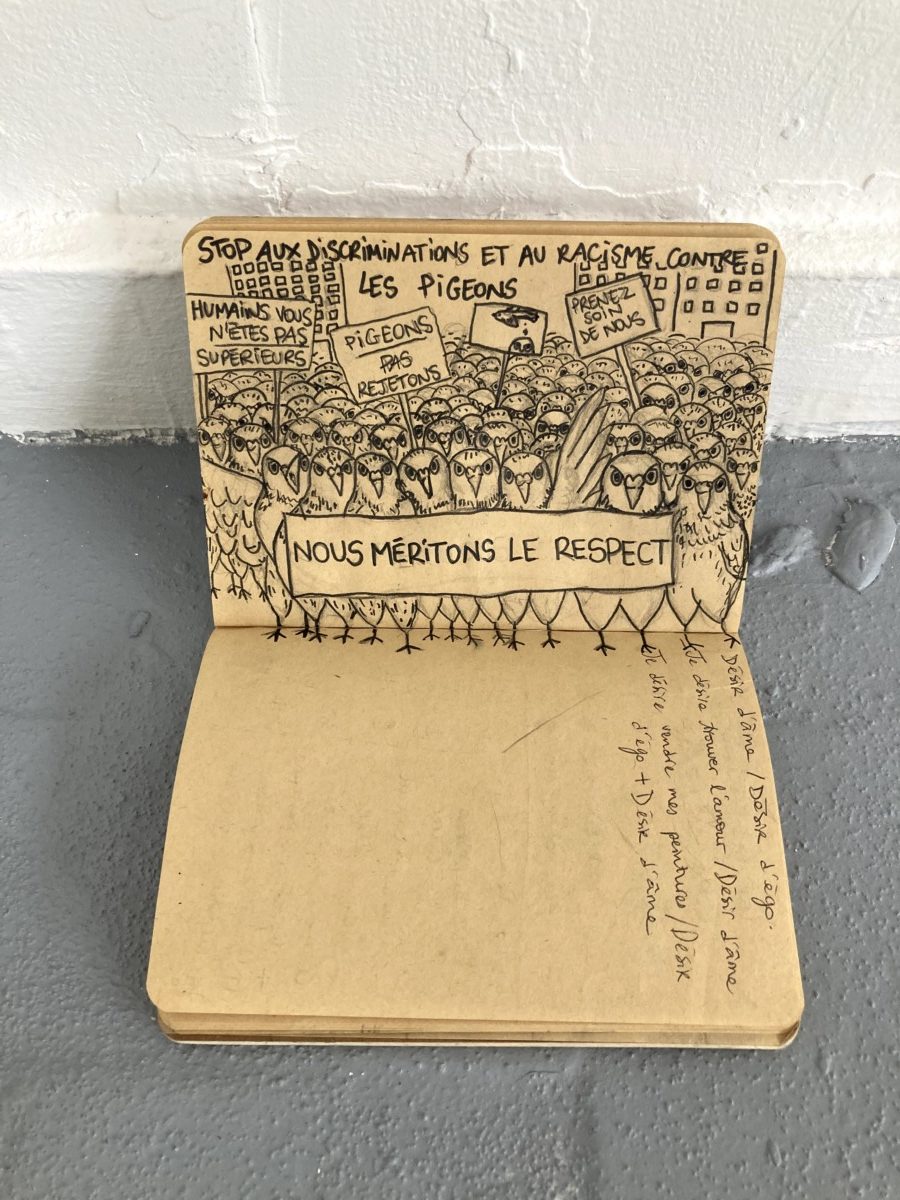 STOP AUX DISCRIMINATIONS ET AU RACISME CONTRE
LES PIGEONS
HUMAINS VOUS
N'ÊTES PAS
SUPÉRIEURS
PIGEONS
PAS
REJETONS
PRENEZ
SOIN
DE NOUS
NOUS MÉRITONS LE RESPECT
Désir d'âme / Désir d'égo.
Je désire trouver l'amour / Désir d'âme
Je désire vendre mes peintures / Désir
d'égo + Désir d'âme